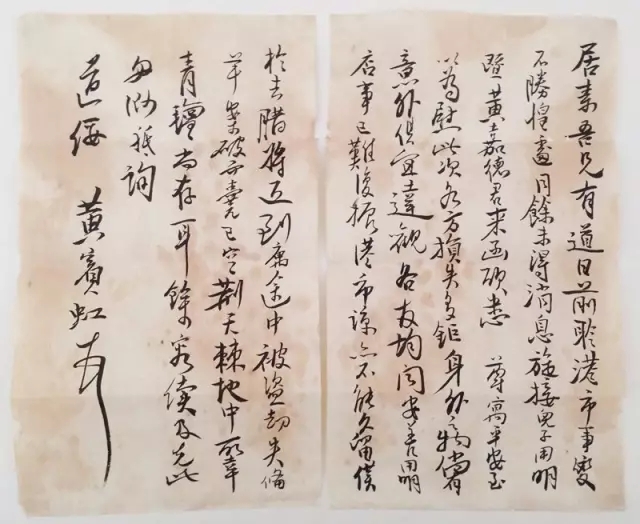 居素吾兄有道日前聆港市事變
不勝惶慮月餘未得消息旋接兒子用明
暨黃嘉德君來函欣悉 尊寓平安至
以為慰此次各方損失多鉅身外之物偶有
意外俱宜達觀各友均闾安善用明
店事已難復振港市諒亦不能久留僕
於去臘將返到寓途中被盜劫失備
平案破而橐已空荆天棘地中所幸
青氈尚存耳餘容續及允此
匆泐祗詢
道綏 黃賓虹